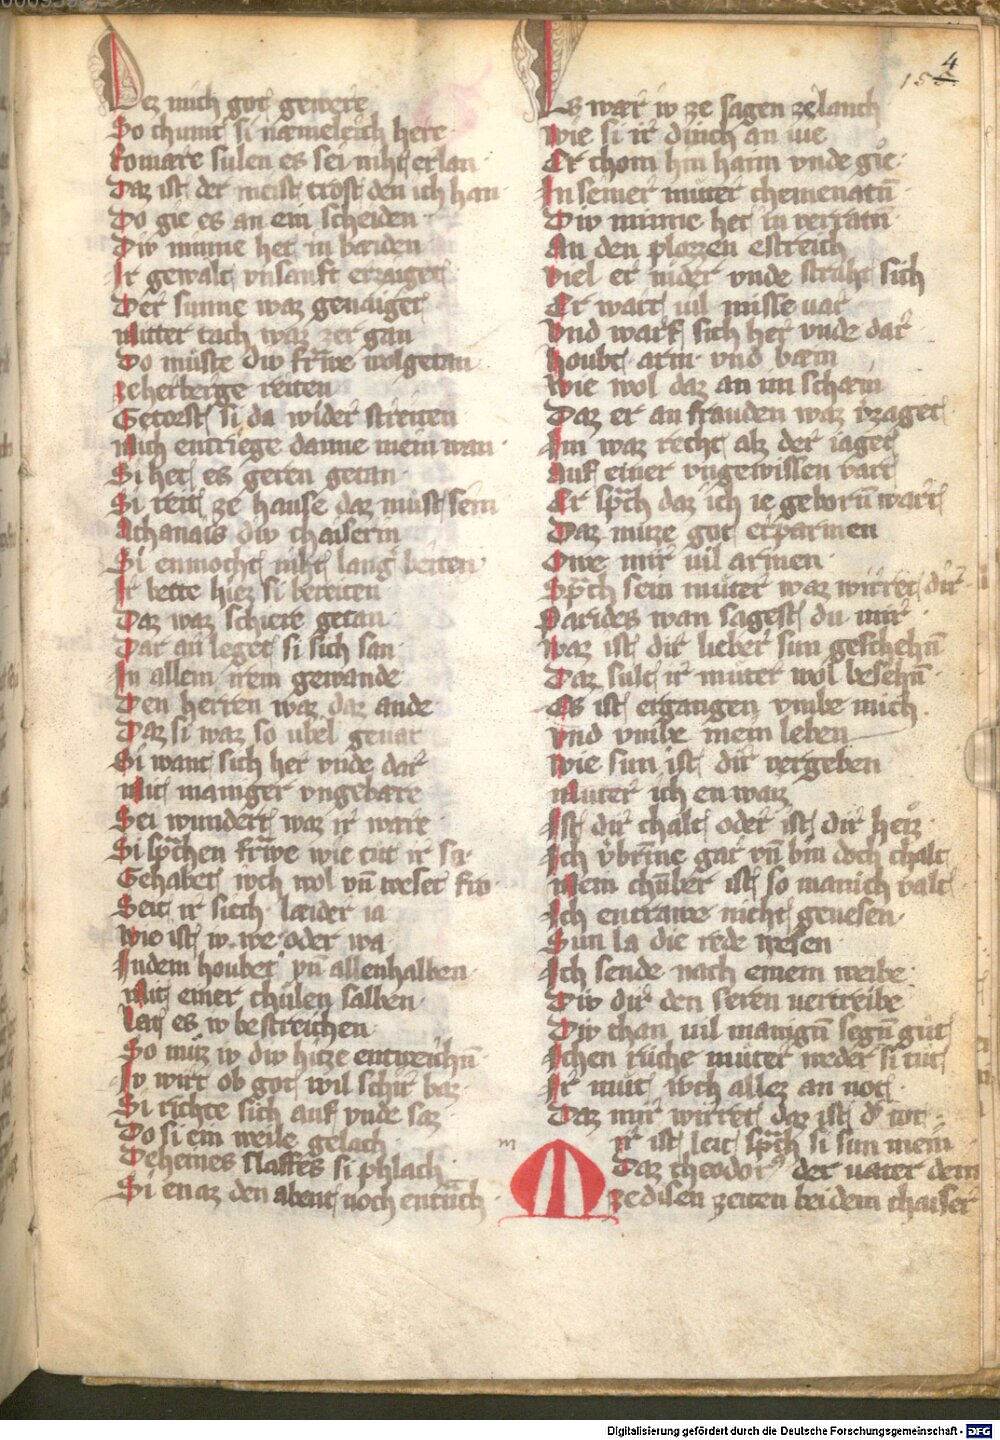 Dez mich got gewere
So chumt si næmeleich here
Romare sulen es sei niht erlan
Daz ist der meist trost den ich han
Do gie es an ein scheiden
Diw minne het in bæiden
Ir gewalt vnsanft erzaiget
Der sunne waz genaiget
Mitter tach waz zer gan
Do müste diw frwe wolgetan
ze herberge reiten
Getorst si da wider streiten
Mich entriege danne mein wan
Si het es geren getan
Si reit ze hause daz müst sein
Athanais diw chaiserin
Si enmocht niht lang beiten
Ir bette hiez si bereiten
Daz waz schiere getan
Dar an leget si sich san
In allem irem gewande
Den herren waz daz ande
Daz si waz so ubel geuar
Si want sich her vnde dar
Mit maniger vngebære
Sei wundert waz ir wære
Si sprachen frwe wie tut ir
Gehabet iwch wol vn weset
Seit ir siech læider ia
Wie ist iw we oder wa
In dem houbet vn allenhalben
Mit einer chülen salben
Lat es iw bestreichen
So müz iw diw hitze entweichn
Iw wirt ob got wil schir baz
Si richte sich auf vnde saz
Do si ein weile gelach
Deheines slaffes si phlach
Si enaz den abent noch entranch
Es wær iw ze sagen ze lanch
Wie si ir dinch an uie
Er chom hin haim vnde gie
In seiner müter chemenatn
Diw minne het in verratn
An den plozzen estreich
Viel er nider vnde straht sich
Er wart uil misse uar
Vnd warf sich her vnde dar
Houbt arm vnd bæin
Wie wol daz an im schæin
Daz er an frauden waz vzaget
Im waz recht alz der iaget
Auf einer vngewissen vart
Er sprach daz ich ie geborn wart
Daz müze got erparmen
Owe mir uil armen
Sprach sein müter waz wirret dir
Parides wan sagest du mir
Waz ist dir lieber sun geschehn
Daz sult ir müter wol besehn
Es ist ergangen vmbe mich
Vnd vmbe mein leben
Wie sun ist dir vergeben
Muter ich en waiz
Ist dir chalt oder ist dir heiz
Ich vbrinne gar vn bin doch chalt
Mein chumber ist so manich valt
Ich entrawe nicht genesen
Sun la die rede wesen
Ich sende nach einem weibe
Diw dir den seren uertreibe
Diw chan uil manign segn güt
Ichen rüche müter weder si tüt
Ir müt iwch allez an not
Daz mir wirret daz ist der tot
m
ir ist leit sprach si sun mein
Daz theodor der uater dein
ze disen zeiten bei dem chaiser
154
Digitalisierung gefördert durch die Deutsche Forschungsgemeinschaft - DFG